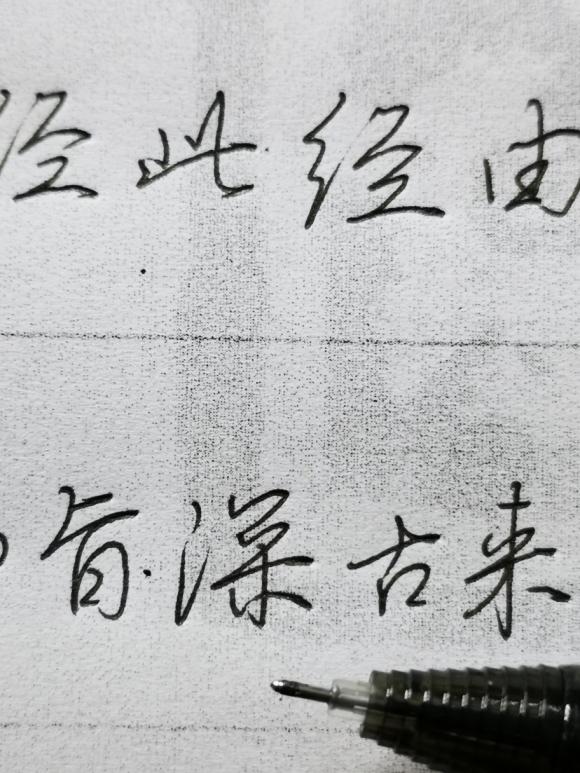 经此经由
旨深古来